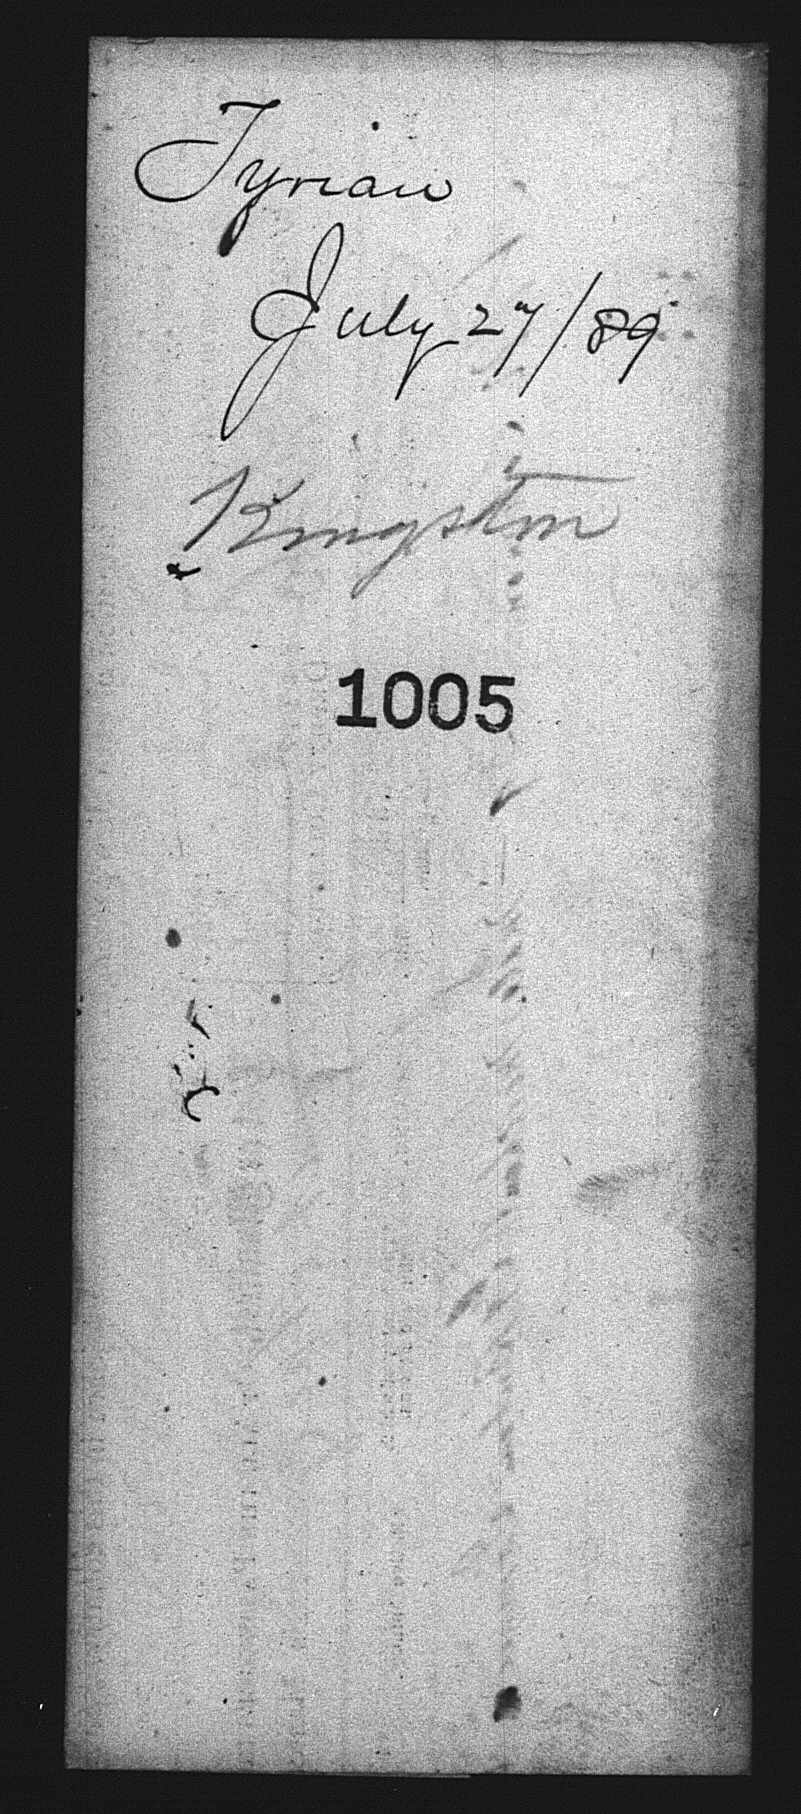 Tyrian
July 27/89
Kingston
1005